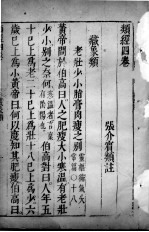 類經四卷
張介賓類註
藏象類
老壯少小脂膏肉瘦之別
黃帝問於伯高曰人之肥瘦大小寒溫有老壯
少小別之奈何 伯高對曰人年五
十已上為老二十已上為壯十八已上為少六
歲已上為小黃帝曰何以度知其肥瘦伯高曰